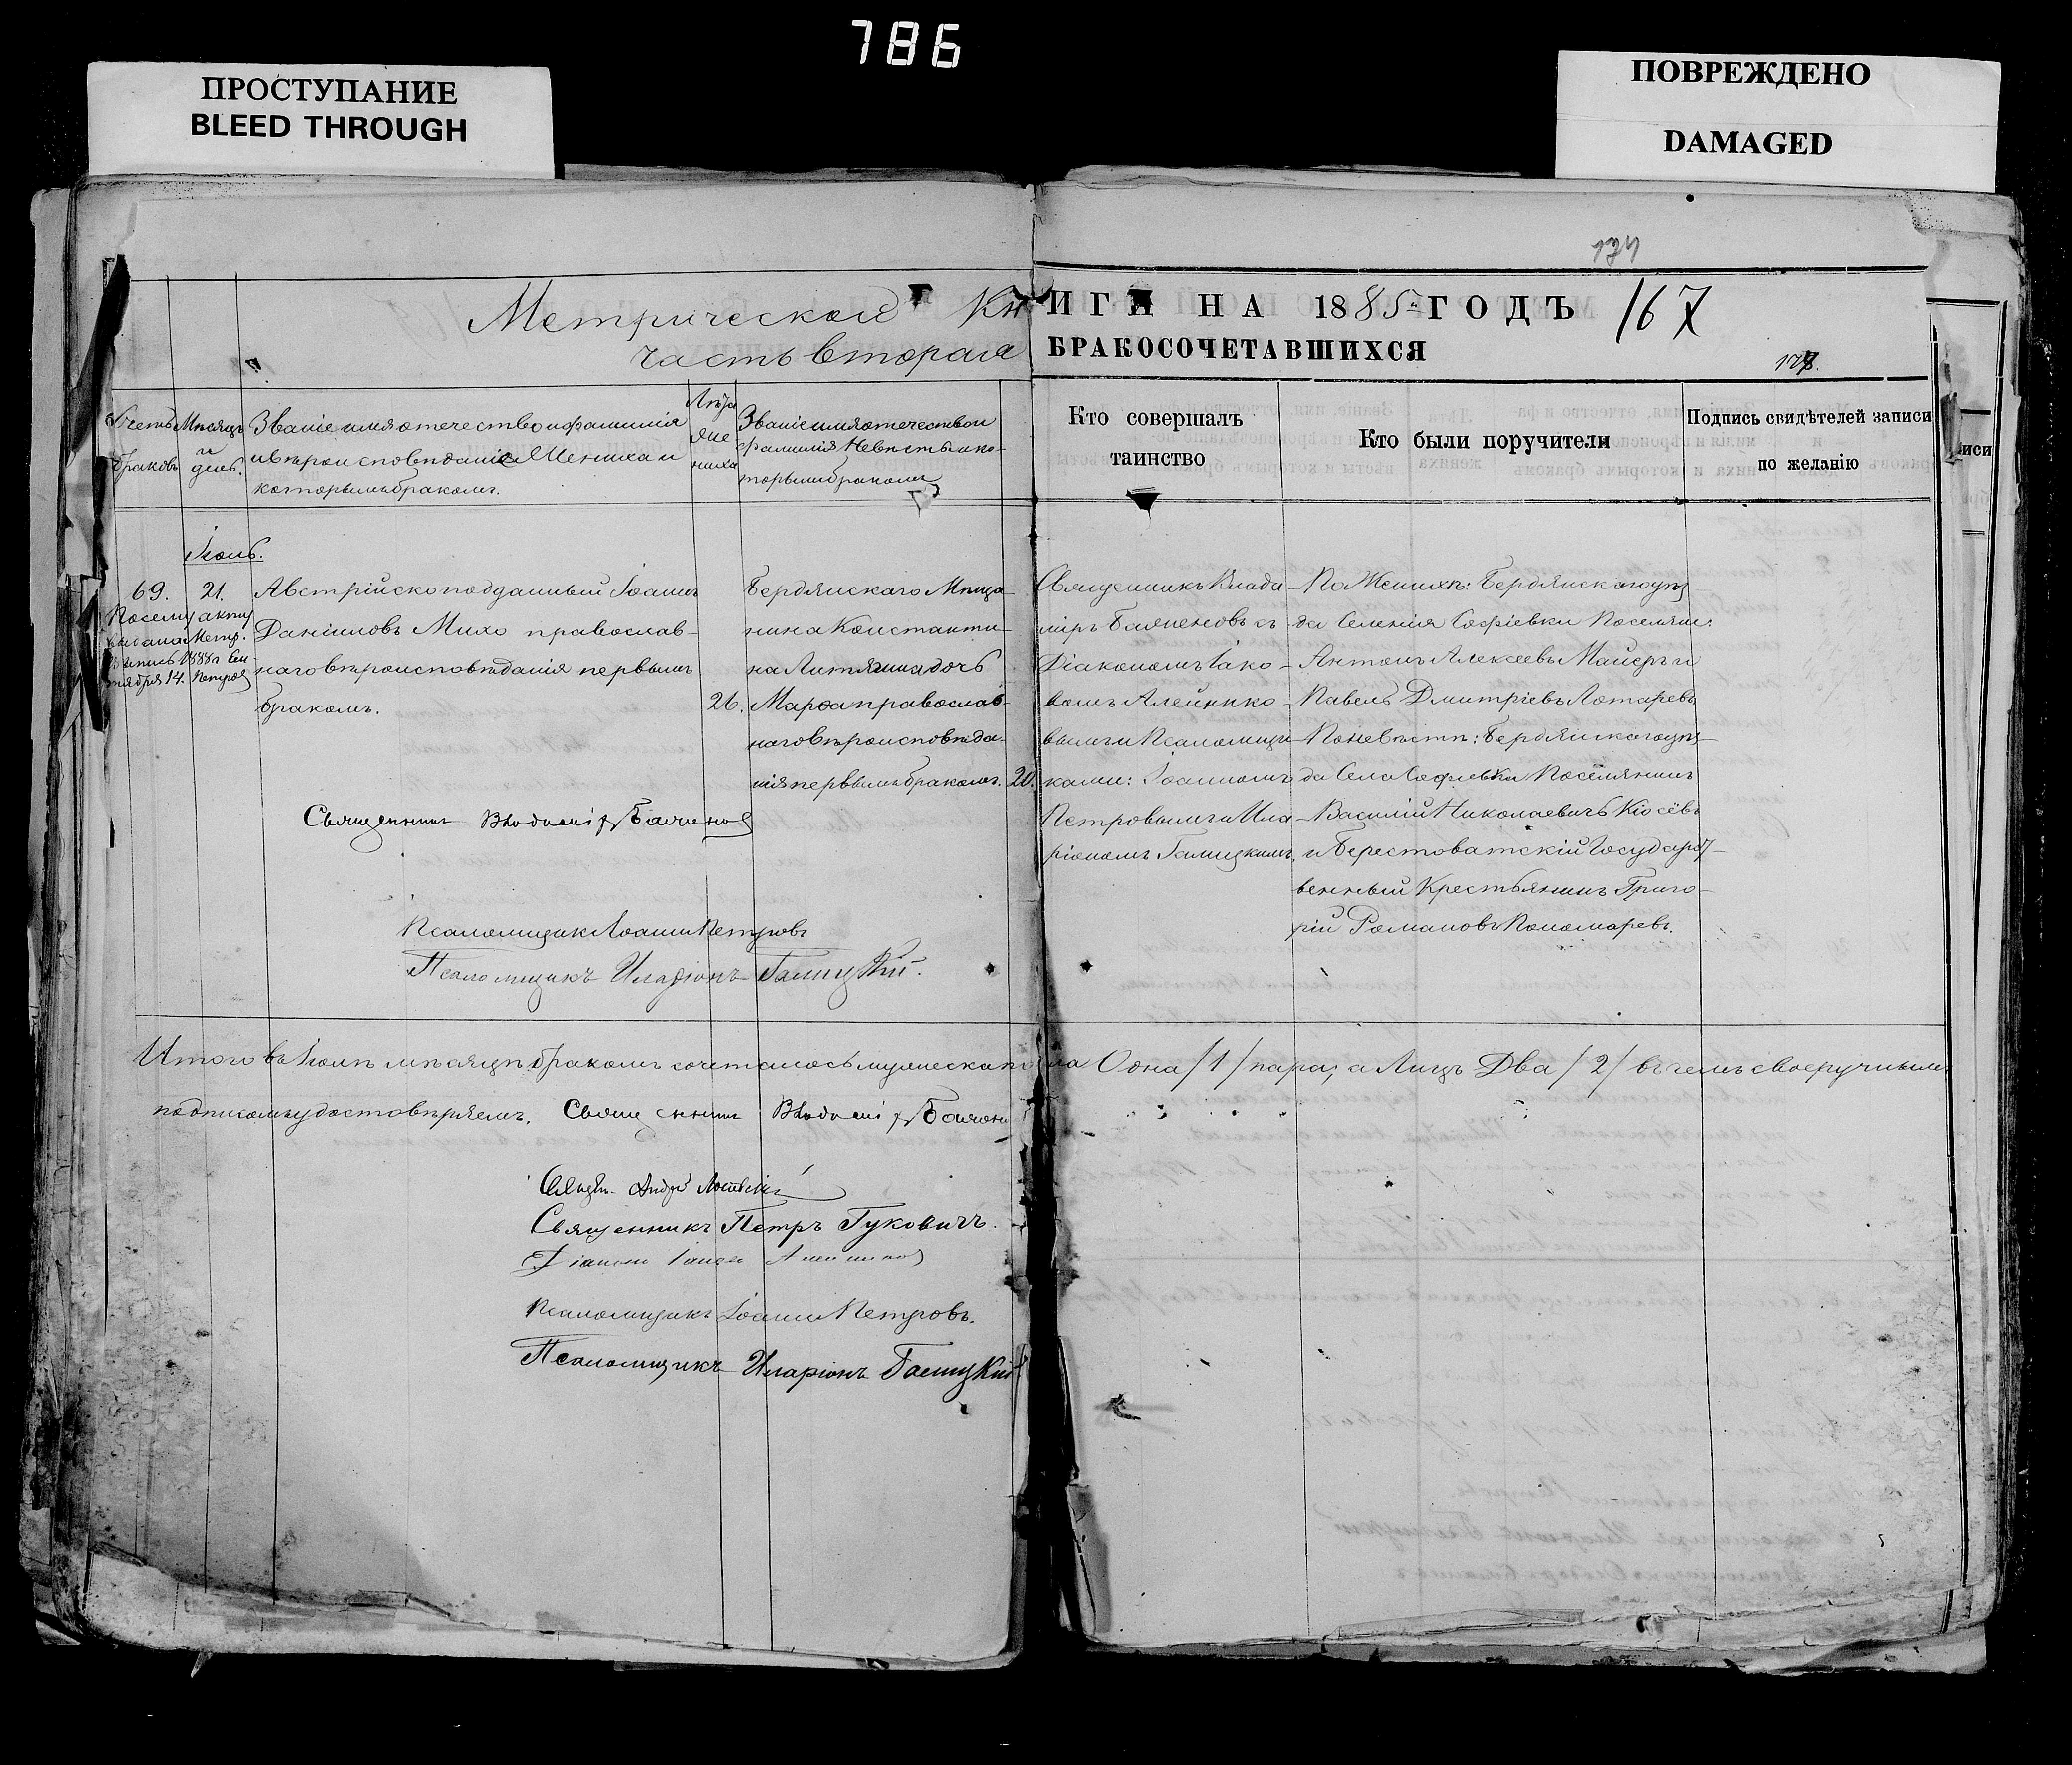 786
ПРОСТУПАНИЕ
BLEED THROUGH
ПОВРЕЖДЕНО
DAMAGED
174
Метрической Кн
ИГИ НА 1885 ГОДЪ 167
часть вторая
БРАКОСОЧЕТАВШИХСЯ
178.
Счетъ
браковъ
Мѣсяцъ
и
день.
Званіе имя отечество и фамилія
и вѣроисповѣданіе Жениха и
которымъ бракомъ.
Лѣта
же
ниха
Званіе имя отечество и
фамилія Невѣсты и ко-
торымъ бракомъ
Кто совершалъ
таинство
Кто были поручители
Подпись свидѣтелей записи
по желанію
иси
Іюль.
69.
21.
По сему акту
выдана Метр.
выпись 1888 г Сен
тября 14. Петров
Австрійско подданный Іоаннъ
Даніиловъ Михо православ-
наго вѣроисповѣданія первымъ
бракомъ.
26.
Бердянскаго Мѣща-
нина Константи-
на Литяшна дочь
Марѳа православ-
наго вѣроисповѣда-
нія первымъ бракомъ.
20.
Священникъ Влади-
міръ Баченовъ съ
Діакономъ Іако-
вомъ Алейнико-
вымъ и Псаломщи-
ками: Іоанномъ
Петровымъ и Ила-
ріономъ Галицкимъ.
По Женихѣ: Бердянскаго уѣз-
да Селенія Софіевки Поселяне:
Антонъ Алексеевъ Майеръ и
Павелъ Дмитріевъ Лотаревъ
По невѣстѣ: Бердянскаго уѣз-
да Села Софіевки Поселянинъ
Василій Николаевичъ Кіосевъ
и Берестоватскій Государст-
венный Крестьянинъ Григо-
рій Романовъ Пономаревъ.
Священникъ Владиміръ Баченов
Псаломщикъ Іоаннъ Петровъ
Псаломщикъ Иларіонъ Галицкій.
Итого въ Іюлѣ мѣсяцѣ бракомъ сочеталось мужеска по
ла Одна /1/ пара, а Лицъ Два /2/ въ чемъ своеручнымъ
подписомъ удостовѣряемъ. Священникъ Владиміръ Баченов
Священникъ Петръ Гуковичъ.
Діаконъ Іаковъ Алейников
Псаломщикъ Іоаннъ Петровъ.
Псаломщикъ Иларіонъ Галицкій